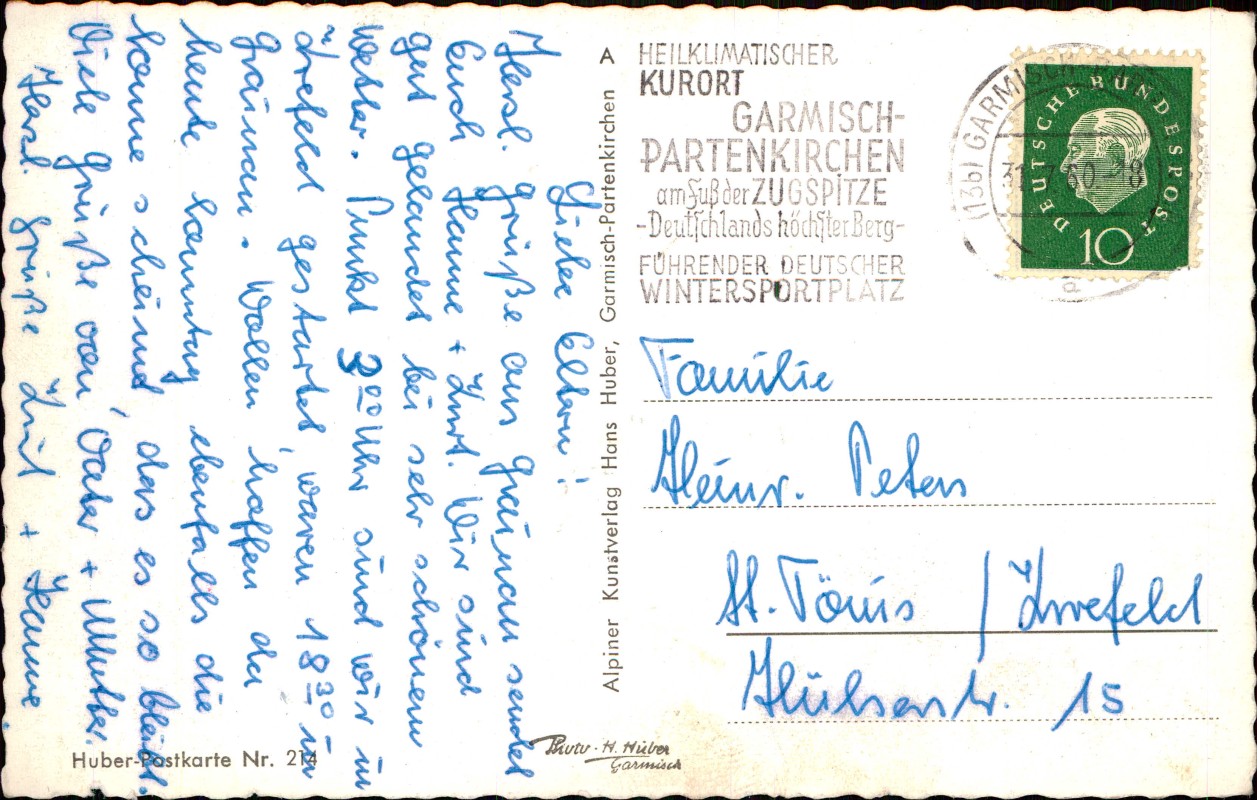 Liebe Eltern!
Herzl. Grüße aus Grainau sendet
Euch Hanne + Kurt. Wir sind
gut gelandet bei sehr schönem
Wetter. Punkt 3⁰⁰ Uhr sind wir in
Krefeld gestartet, waren 18³⁰ in
Grainau. Wollen, hoffen da
heute Sonntag ebenfalls die
Sonne scheind, das es so bleibt.
Viele Grüße von, Vater + Mutter.
Herzl. Grüße Kurt + Hanne.
Huber-Postkarte Nr. 214
Alpiner Kunstverlag Hans Huber, Garmisch-Partenkirchen A
Photo - H. Huber
Garmisch
HEILKLIMATISCHER
KURORT
GARMISCH-
PARTENKIRCHEN
am Fuß der ZUGSPITZE
-Deutschlands höchster Berg-
FÜHRENDER DEUTSCHER
WINTERSPORTPLATZ
(13b) GARMISCH-
60 - 8
a
DEUTSCHE BUNDESPOST
10
Familie
Heinr. Peters
St. Tönis / Krefeld
Hülserstr. 15